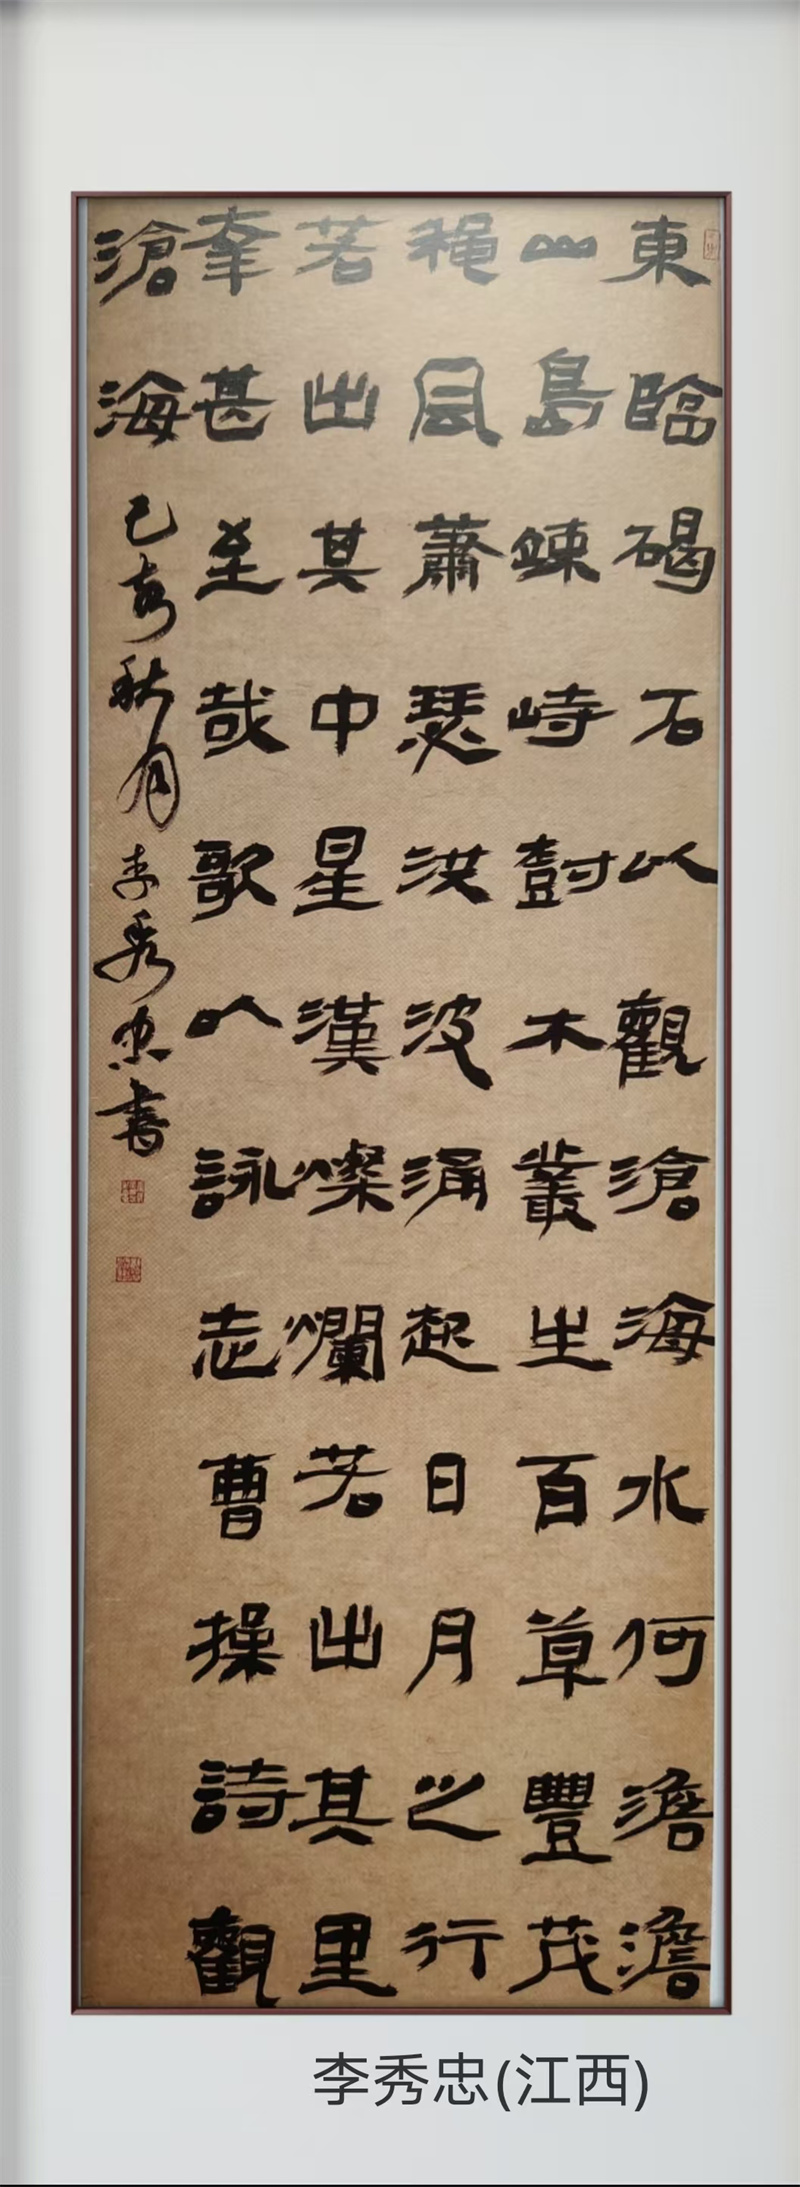 東臨碣石以觀滄海水何澹澹
山島竦峙尌木叢生百草豐茂
穐風蕭瑟洪波涌起日月之行
若出其中星漢燦爛若出其里
幸甚至哉歌以詠志曹操詩觀
滄海己亥秋月李秀忠書
李秀忠(江西)